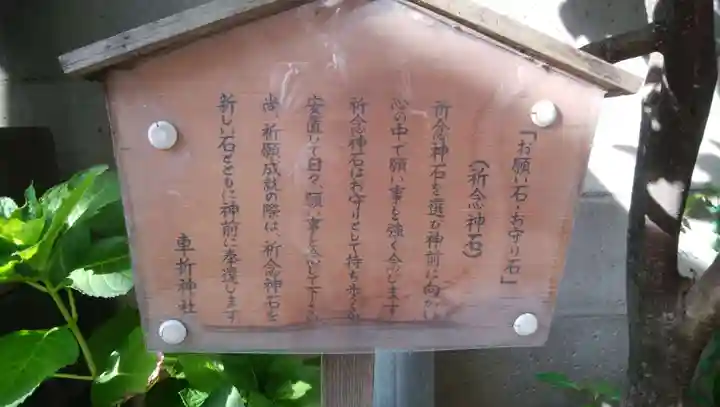 「お願い石・お守り石」
(祈念神石)
祈念神石を選び神前に向かい
心の中で願い事を強く念じます
祈念神石はお守りとして持ち歩くか
安置して日々、願い事を念じて下さい
尚、祈願成就の際は、祈念神石を
新しい石とともに神前に奉還します
車折神社